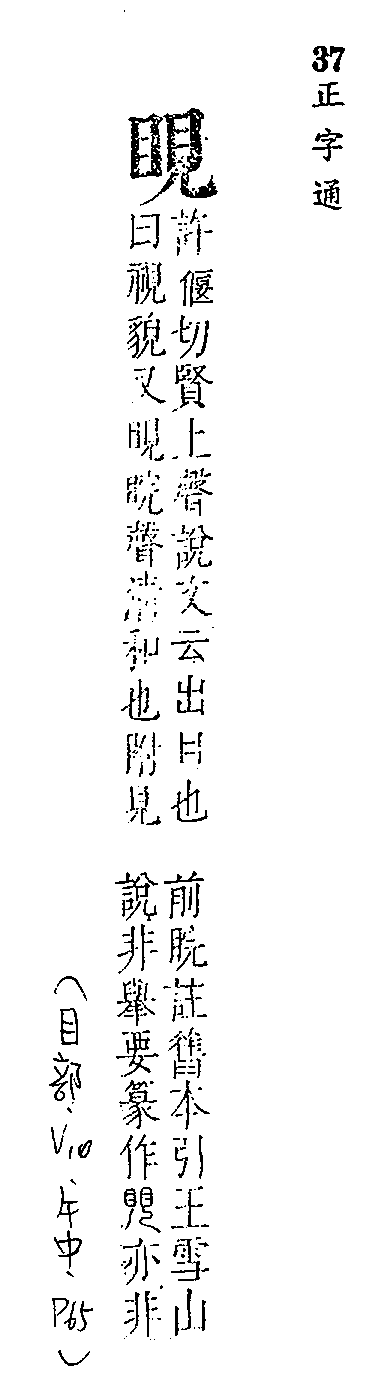 37 正字通
睍
許偃切賢上聲說文云出目也
曰視貌又睍睆聲清和也附見
前睆註舊本引王雪山
說非舉要篆作亦非
(目部、V10、午中、P65)